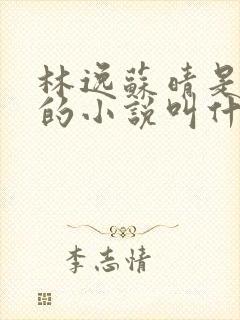 林逸蘇晴是
的小說叫什
李志情